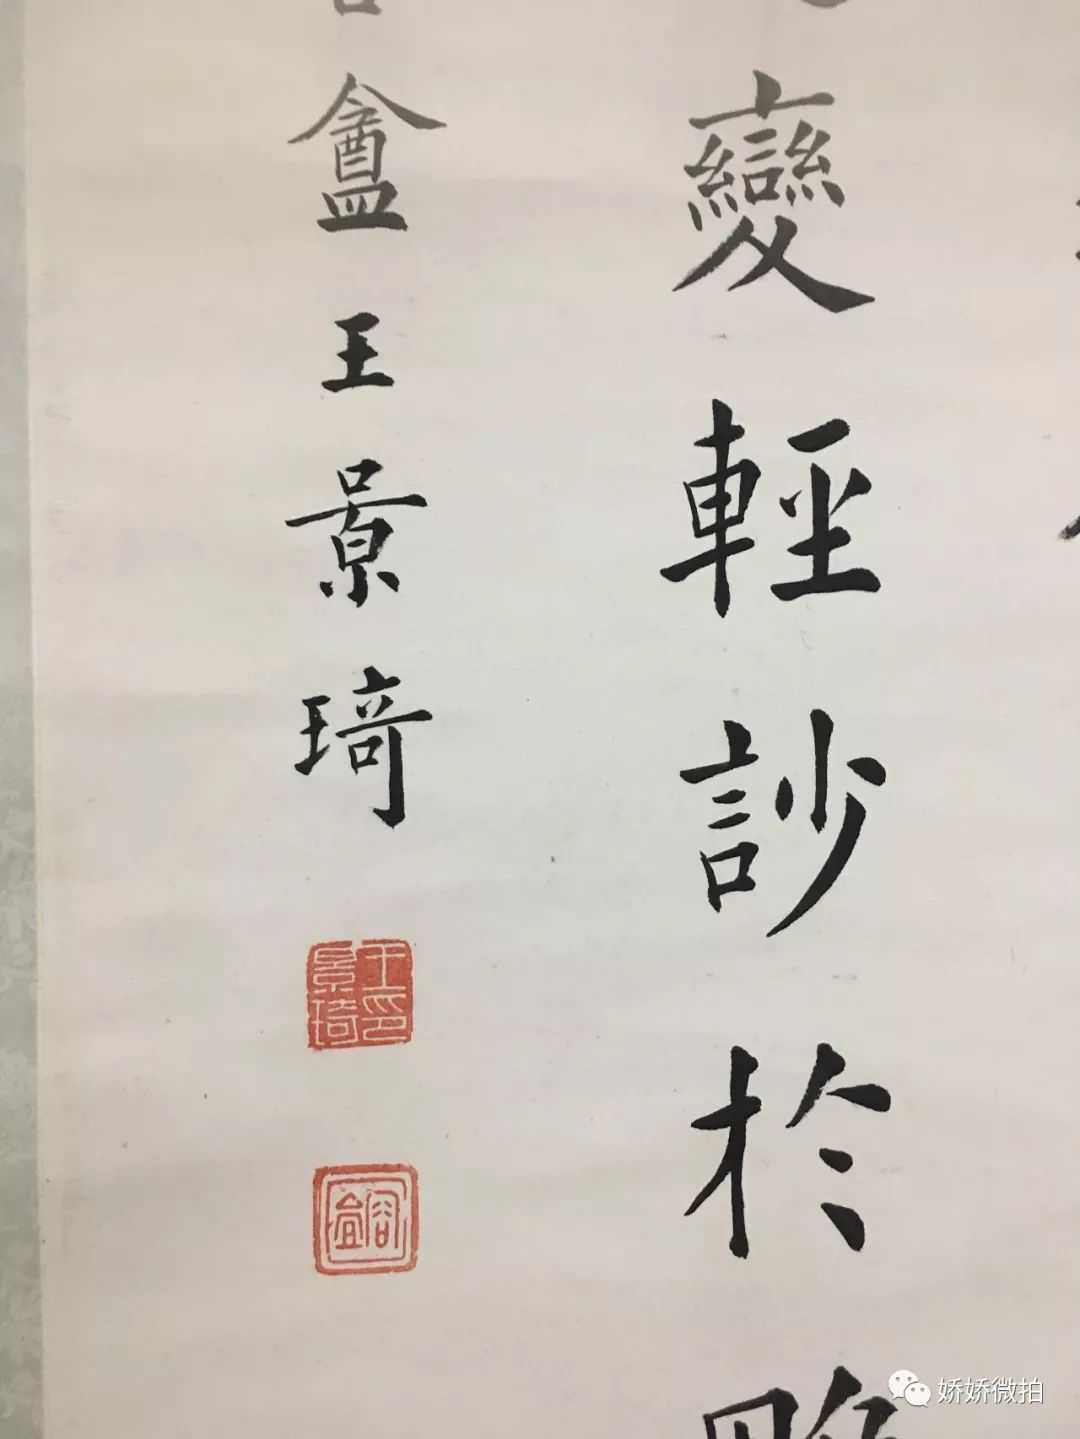 變輕訬於
盦王景琦
王景琦印
容盦
娇娇微拍